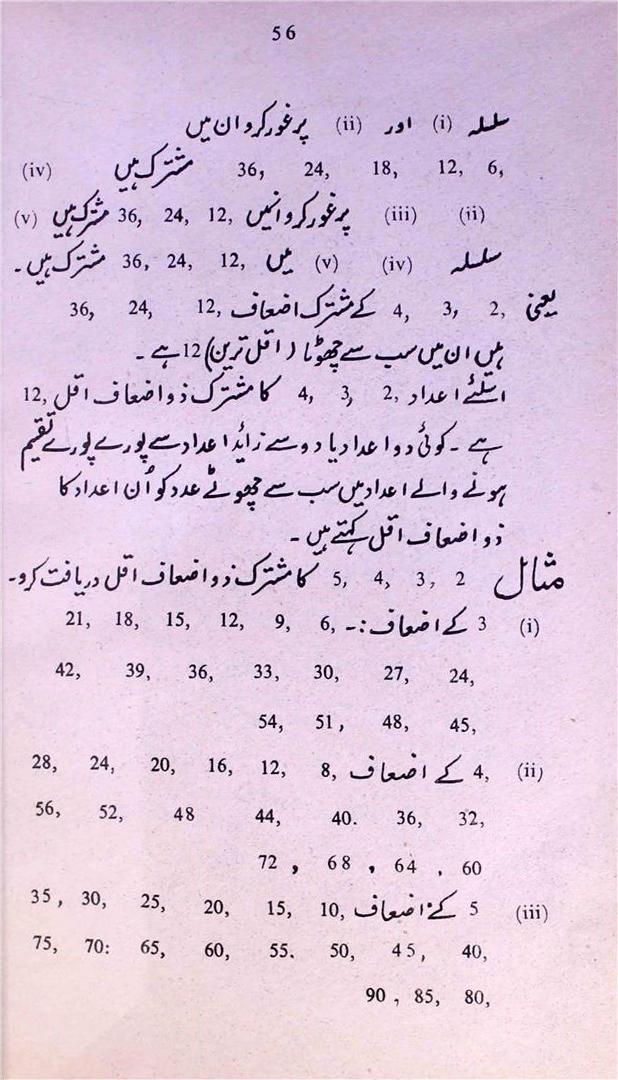 56
سلسلہ (i) اور (ii) پر غور کرو ان میں
6, 12, 18, 24, 36, مشترک ہیں (iv)
(ii) (iii) پر غور کرو انمیں 12, 24, 36, مشترک ہیں (v)
سلسلہ (iv) (v) میں 12, 24, 36, مشترک ہیں۔
یعنی 2, 3, 4, کے مشترک اضعاف 12, 24, 36,
ہیں ان میں سب سے چھوٹا (اقل ترین) 12 ہے۔
اسلئے اعداد 2, 3, 4, کا مشترک ذو اضعاف اقل 12,
ہے۔ کوئی دو اعداد یا دو سے زائد اعداد سے پورے پورے تقیم
ہونے والے اعداد میں سب سے چھوٹے عدد کو اُن اعداد کا
ذو اضعاف اقل کہتے ہیں۔
مثال 2 3, 4, 5, کا مشترک ذو اضعاف اقل دریافت کرو۔
(i) 3 کے اضعاف :۔ 6, 9, 12, 15, 18, 21,
24, 27, 30, 33, 36, 39, 42,
45, 48, 51, 54,
(ii) 4, کے اضعاف 8, 12, 16, 20, 24, 28,
32, 36, 40. 44, 48 52, 56,
60 , 64 , 68 , 72
(iii) 5 کے اضعاف 10, 15, 20, 25, 30, 35,
40, 45, 50, 55. 60, 65, 70: 75,
80, 85, 90,